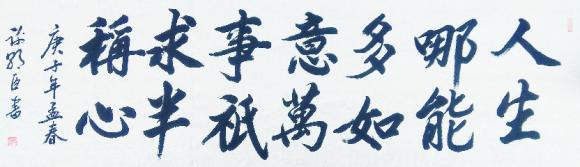 人生
哪能
多如
意萬
事祇
求半
稱心
庚子年孟春
臣書